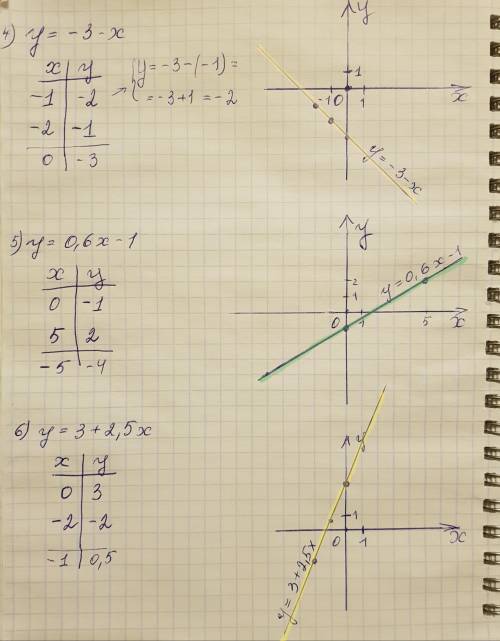 4) y = -3-x
x | y
-1 | -2 → {y = -3-(-1) =
-2 | -1 = -3+1 = -2
0 | -3
y
1
-1 0 1 x
y = -3-x
5) y = 0,6x-1
x | y
0 | -1
5 | 2
-5 | -4
y
2
1
y = 0,6x-1
0 1 5 x
6) y = 3+2,5x
x | y
0 | 3
-2 | -2
-1 | 0,5
y
1
0 1 x
y = 3+2,5x